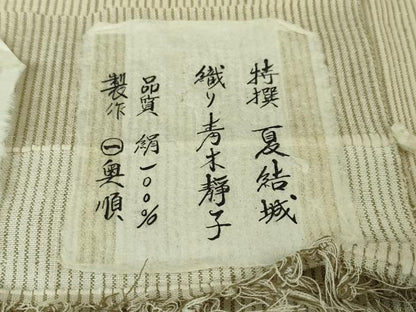 特撰 夏結城
織り 青木靜子
品質 絹一〇〇%
製作 ㊀奥順